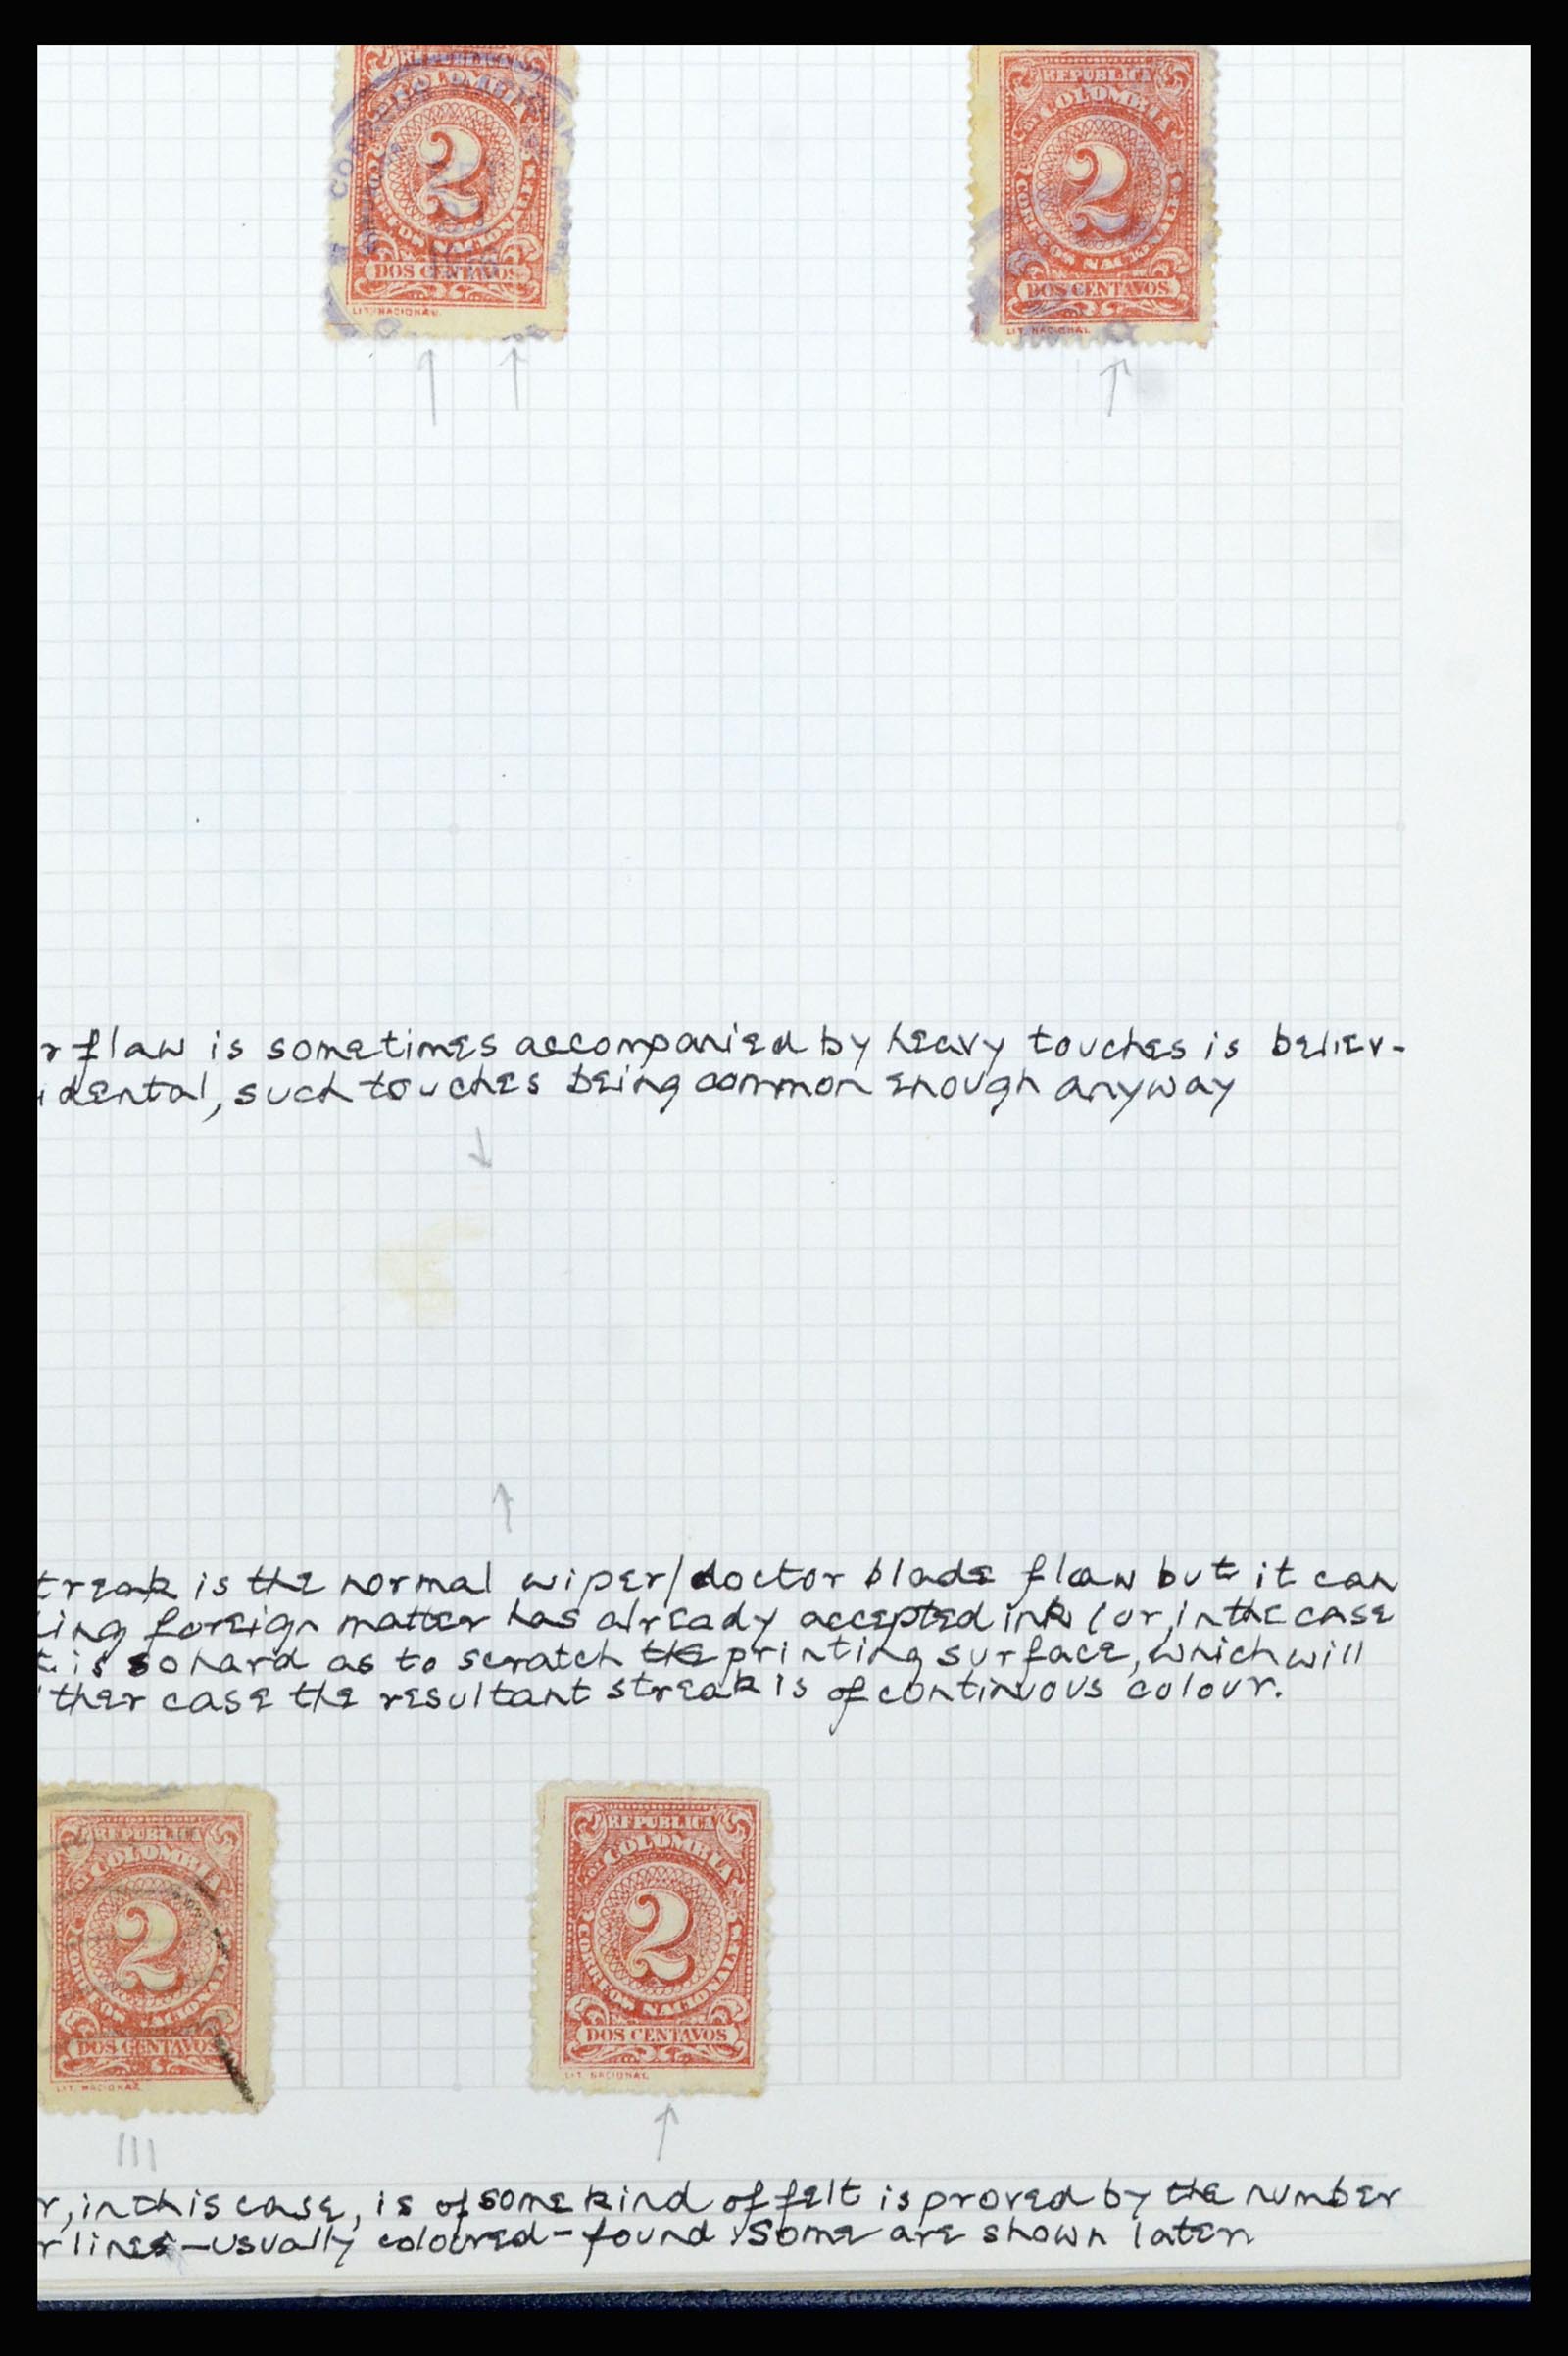 REPUBLICA
DE COLOMBIA
2
CORREOS NACIONALES
DOS CENTAVOS
LIT. NACIONAL
REPUBLICA
DE COLOMBIA
2
CORREOS NACIONALES
DOS CENTAVOS
LIT. NACIONAL
r flaw is sometimes accompanied by heavy touches is believ-
idental, such touches being common enough anyway
treak is the normal wiper/doctor blade flaw but it can
ing foreign matter has already accepted ink (or, in the case
t is so hard as to scratch the printing surface, which will
ther case the resultant streak is of continuous colour.
REPUBLICA
DE COLOMBIA
2
CORREOS NACIONALES
DOS CENTAVOS
LIT. NACIONAL
REPUBLICA
DE COLOMBIA
2
CORREOS NACIONALES
DOS CENTAVOS
LIT. NACIONAL
r, in this case, is of some kind of felt is proved by the number
r lines - usually coloured - found. Some are shown later